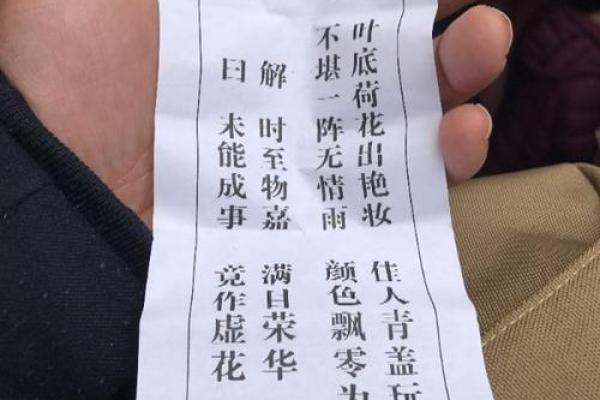 叶底荷花出艳妆 佳人青盖玩
不堪一阵无情雨 颜色飘零
解 时至物嘉 满目荣华
曰 未能成事 竟作虚花